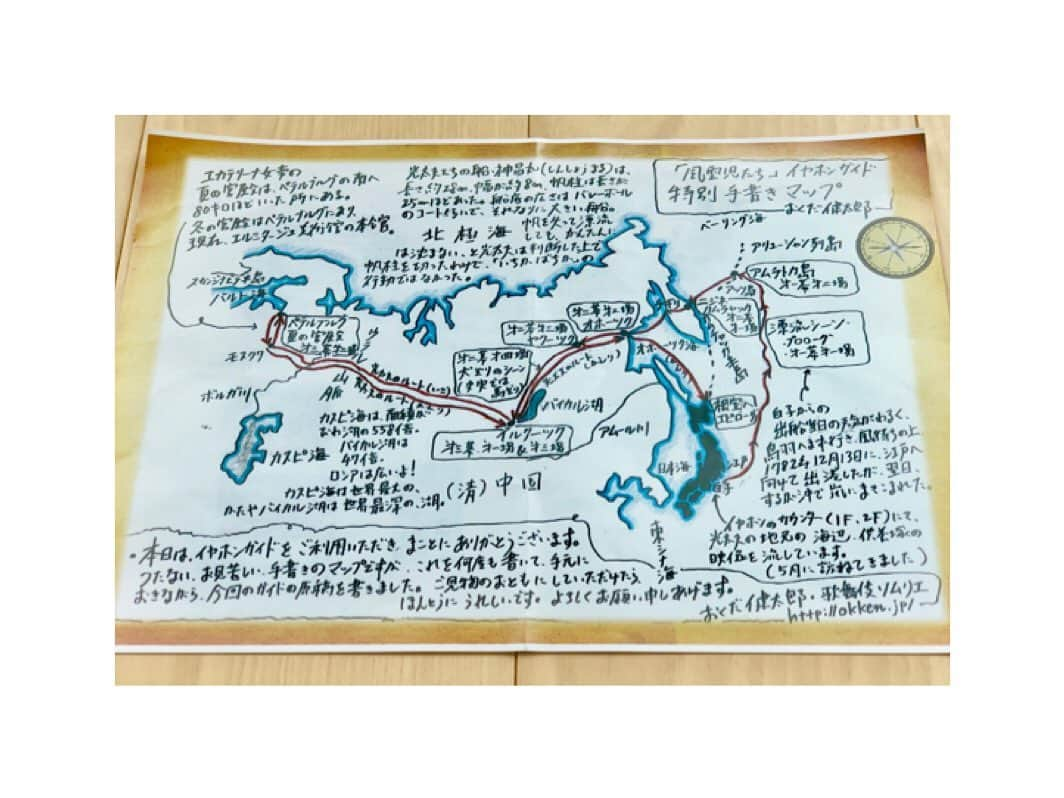 エカテリーナ女帝の
夏の宮殿は、ペテルブルグの南へ
80キロほどいった所にある。
冬の宮殿はペテルブルグにあり、
現在、エルミタージュ美術館の本館。
光太夫たちの船・神昌丸(しんしょうまる)は、
長さ約28m、幅が約8m、帆柱は長さが
25mほどあった。船底の広さはバレーボール
のコートくらいで、それなりに大きい船。
帆を失って漂流
しても、かんたんに
は沈まない、と光太夫は判断した上で
帆柱を切ったわけで、「いちかばちか」の
行動ではなかった。
「風雲児たち」イヤホンガイド
特別 手書きマップ
おくだ健太郎
北極海
ベーリング海
アリューシャン列島
アムチトカ島
第一幕第二場
スカンジナビア半島
バルト海
ペテルブルグ
夏の宮殿
第二幕第三場
モスクワ
ボルガ川
カスピ海
光太夫のルート(いき)
光太夫のルート
第二幕第四場
犬ぞりのシーン
第二幕第二場
ヤクーツク
オホーツク
オホーツク海
ニジネ
カムチャツカ
漂流シーン・
プロローグ
第一幕第一場
バイカル湖
イルクーツク
アムール川
根室へ
エピローグ
カスピ海は、面積が
びわ湖の558倍。
バイカル湖は
47倍。
ロシアは広いよ!
カスピ海は世界最大の、
かたやバイカル湖は世界最深の、湖。
(清)中国
日本海
江戸
白子
東シナ海
白子からの
出船当日の天気がわるく、
鳥羽へまわ行き、風待ちの上、
1782年12月13日に、江戸へ
向けて出港したが、翌日、
するが沖で嵐にまきこまれた。
イヤホンのカウンター(1F、2F)にて、
光太夫の地元の海辺、供養塔の
映像を流しています。
(5月に訪ねてきました)
・本日は、イヤホンガイドをご利用いただき、まことにありがとうございます。
つたない、お見苦しい、手書きのマップですが、これを何度も書いて、手元に
おきながら、今回のガイドの原稿を書きました。ご見物のおともにしていただけたら、
ほんとうにうれしいです。よろしくお願い申しあげます。
おくだ健太郎・歌舞伎ソムリエ
http://okken.jp/